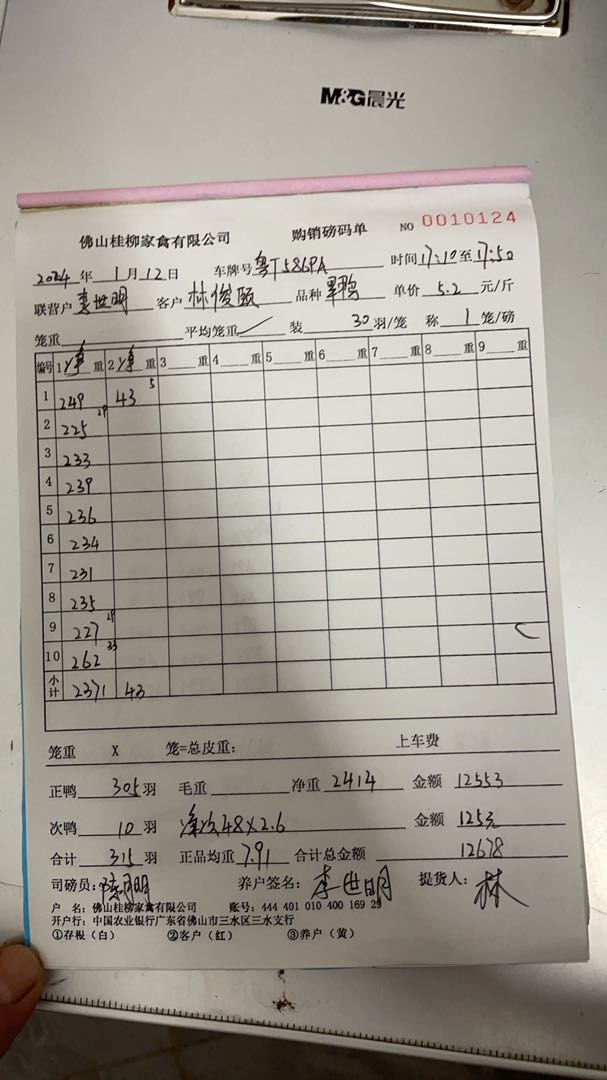 M&G晨光
佛山桂柳家禽有限公司 购销磅码单 NO 0010124
2024年 1月12日 车牌号 粤T586PA 时间17:10至17:50
联营户 李世明 客户 林俊颐 品种 单价 5.2 元/斤
笼重 平均笼重 装 30 羽/笼 称 1 笼/磅
编号 1净重 2净重 3 重 4 重 5 重 6 重 7 重 8 重 9 重
1 249 43 5
2 225 29
3 233
4 239
5 236
6 234
7 231
8 235
9 227 29
10 262 33
小计 2371 43
笼重 X 笼=总皮重: 上车费
正鸭 305 羽 毛重 净重 2414 金额 12553
次鸭 10 羽 净次48×2.6 金额 125元
合计 315 羽 正品均重 7.91 合计总金额 12678
司磅员: 养户签名: 李世明 提货人: 林
户 名: 佛山桂柳家禽有限公司 账号: 444 401 010 400 169 29
开户行: 中国农业银行广东省佛山市三水区三水支行
①存根(白) ②客户(红) ③养户(黄)